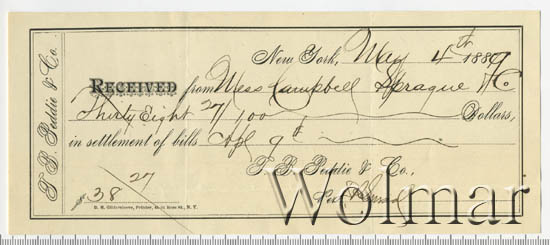 T. B. Peddie & Co.
New York, May 4th 1889
RECEIVED from Mess Campbell Sprague & Co
Thirty Eight 27/100 Dollars,
in settlement of bills Apl 9th
T. B. Peddie & Co.,
Per
$ 38 27
Printer, Rose St., N. Y.
Wolmar